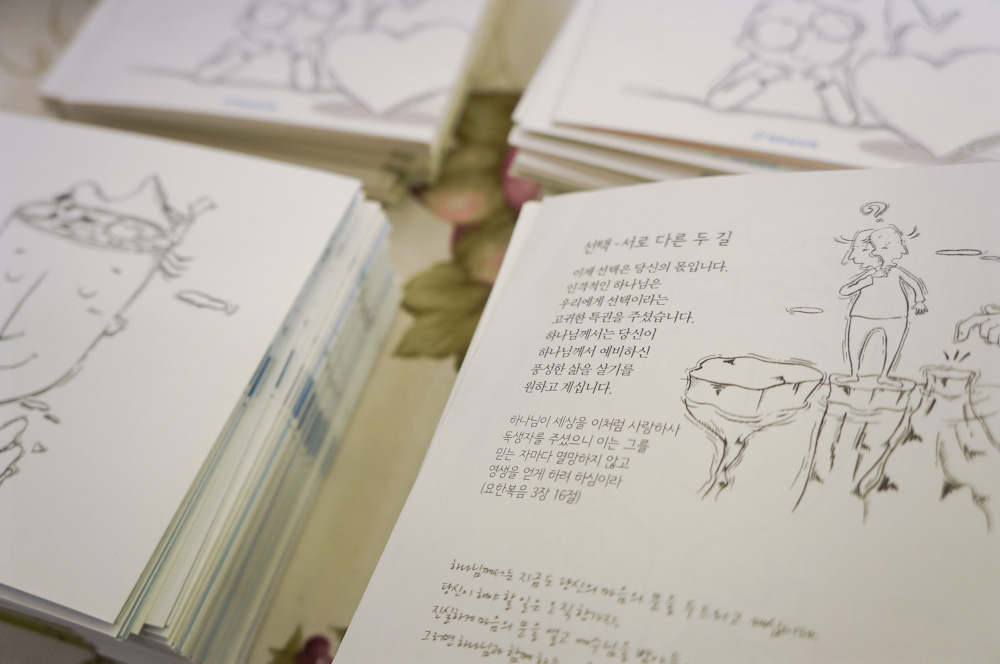 선택 - 서로 다른 두 길
이제 선택은 당신의 몫입니다.
인격적인 하나님은
우리에게 선택이라는
고귀한 특권을 주셨습니다.
하나님께서는 당신이
하나님께서 예비하신
풍성한 삶을 살기를
원하고 계십니다.
하나님이 세상을 이처럼 사랑하사
독생자를 주셨으니 이는 그를
믿는 자마다 멸망하지 않고
영생을 얻게 하려 하심이라
(요한복음 3장 16절)
하나님께서는 지금도 당신의 마음의 문을 두드리고 계십니다.
당신이 해야 할 일은 오직 한가지,
진실하게 마음의 문을 열고 예수님을
그러면 하나님과 함께
?